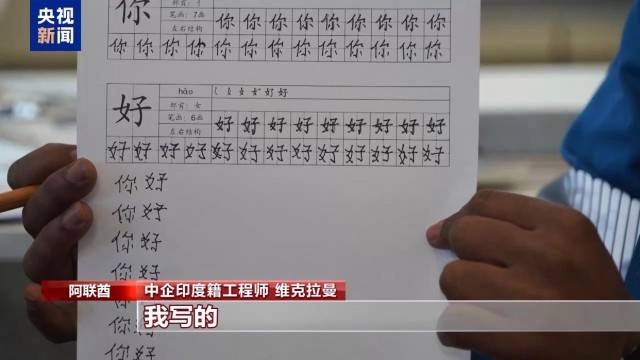 央视
新闻
你
部首：亻
笔画：7画
左右结构
你你你你你你你你你
你你你你你你你你你你你你你
好
hǎo
部首：女
笔画：6画
左右结构
好好好好好好好好好
好好好好好好好好好好好好好
你好
你好
你好
你好
你好
你好
你好
阿联酋 中企印度籍工程师 维克拉曼
我写的